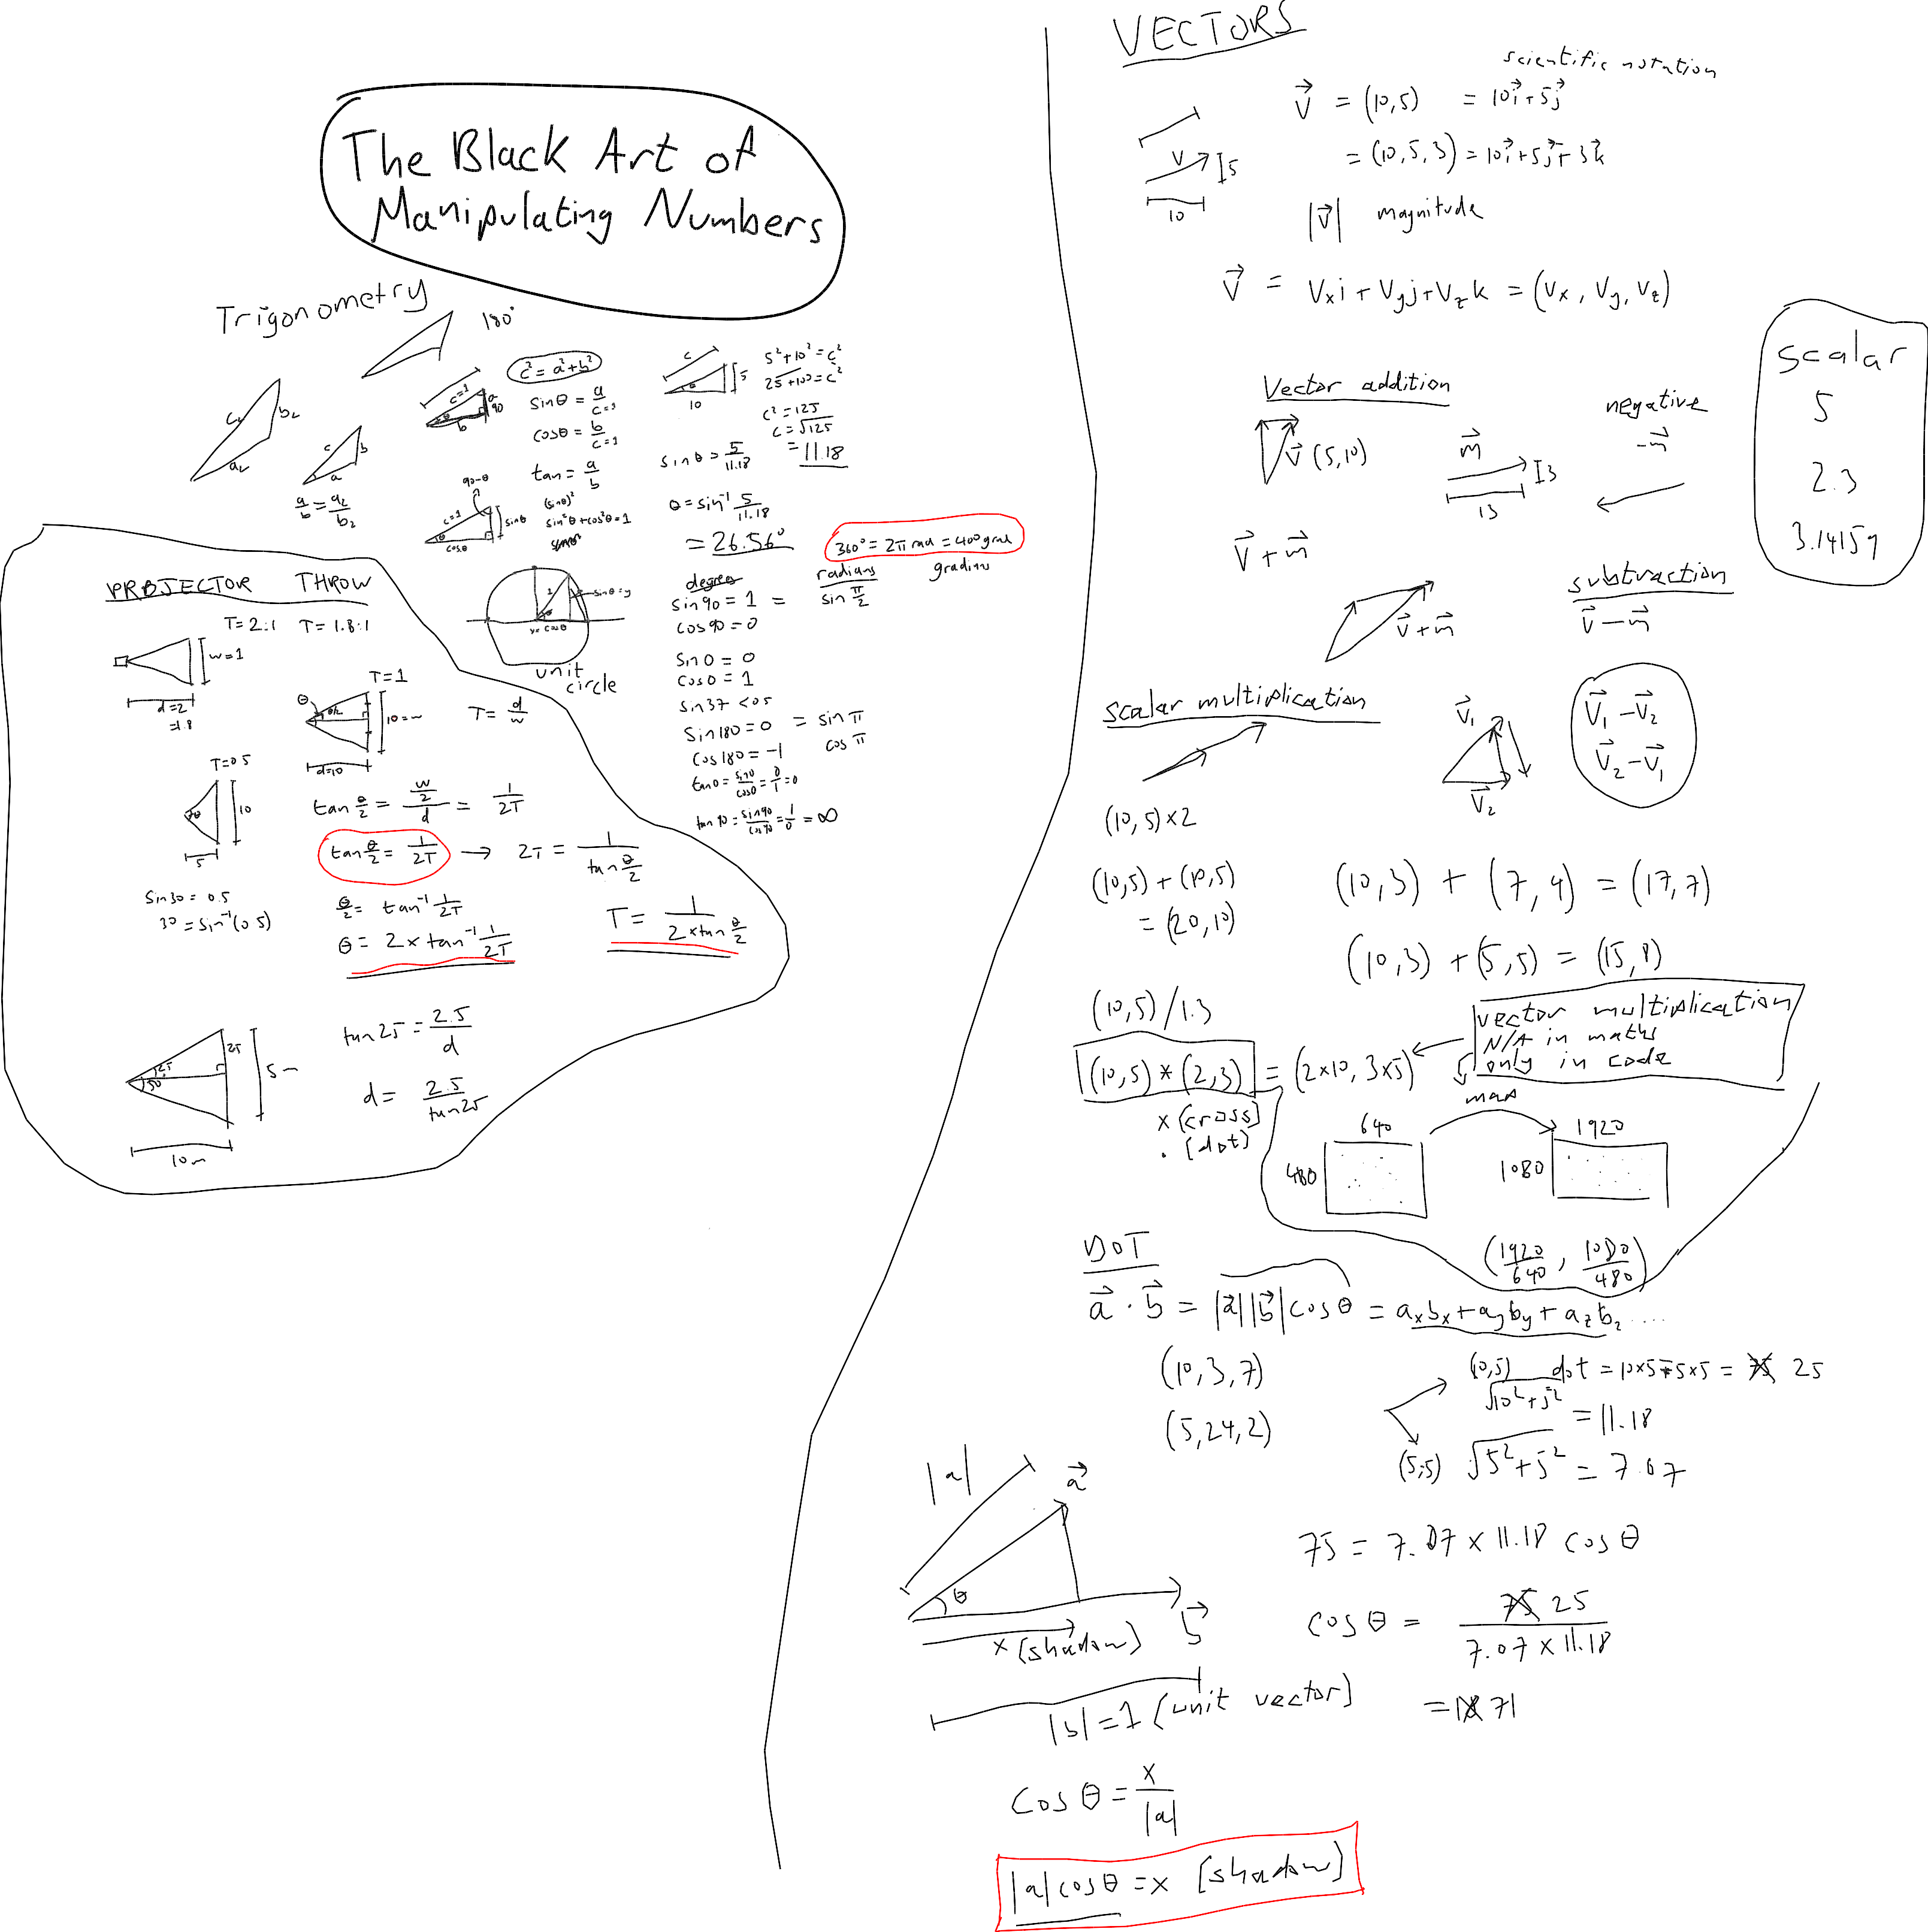 The Black Art of
Manipulating Numbers
Trigonometry
180°
c₂
b₂
a₂
c
b
a
a/b = a₂/b₂
c=1
a
90
θ
b
c² = a² + b²
sinθ = a/c=1
cosθ = b/c=1
tan = a/b
(sinθ)²
sin²θ + cos²θ = 1
90-θ
c=1
sinθ
θ
cosθ
c
5
θ
10
5² + 10² = c²
25 + 100 = c²
c² = 125
c = √125
= 11.18
sin θ = 5/11.18
θ = sin⁻¹ 5/11.18
= 26.56°
360° = 2π rad = 400 grad
radians
gradians
degrees
sin 90 = 1 = sin π/2
cos 90 = 0
sin 0 = 0
cos 0 = 1
sin 37 < 0.5
sin 180 = 0 = sin π
cos 180 = -1 cos π
tan 0 = sin0/cos0 = 0/1 = 0
tan 90 = sin90/cos90 = 1/0 = ∞
1
θ
sinθ = y
x = cosθ
unit
circle
PROJECTOR THROW
T = 2:1 T = 1.8:1
w=1
d=2
=1.8
T=1
θ
θ/2
10=w
d=10
T = d/w
T=0.5
θ
10
5
tan θ/2 = w/2/d = 1/2T
tan θ/2 = 1/2T → 2T = 1/tan θ/2
sin 30 = 0.5
30 = sin⁻¹(0.5)
θ/2 = tan⁻¹ 1/2T
θ = 2 x tan⁻¹ 1/2T
T = 1/2 x tan θ/2
25
50
2.5
5m
10m
tan 25 = 2.5/d
d = 2.5/tan 25
VECTORS
scientific notation
v = (10,5) = 10i + 5j
= (10,5,3) = 10i + 5j + 3k
v
5
10
|v| magnitude
v = Vxi + Vyj + Vzk = (Vx, Vy, Vz)
scalar
5
2.3
3.14159
Vector addition
v (5,10)
m
3
13
negative
-m
v + m
v + m
subtraction
v - m
scalar multiplication
(10,5) x 2
(10,5) + (10,5)
= (20,10)
V₁
V₂
V₁ - V₂
V₂ - V₁
(10,3) + (7,4) = (17,7)
(10,3) + (5,5) = (15,8)
(10,5) / 1.3
(10,5) * (2,3) = (2x10, 3x5)
x (cross)
. (dot)
vector multiplication
N/A in maths
only in code
map
640
480
1920
1080
(1920/640, 1080/480)
DOT
a · b = |a||b| cos θ = axbx + ayby + azbz ....
(10,3,7)
(5,24,2)
(10,5) dot = 10x5-5x5 = 75 25
√10² + 5² = 11.18
(5,-5) √5² + 5² = 7.07
75 = 7.07 x 11.18 cos θ
cos θ = 75 25/7.07 x 11.18
= 71
|a|
a
θ
b
x (shadow)
|b| = 1 (unit vector)
cos θ = x/|a|
|a| cos θ = x (shadow)